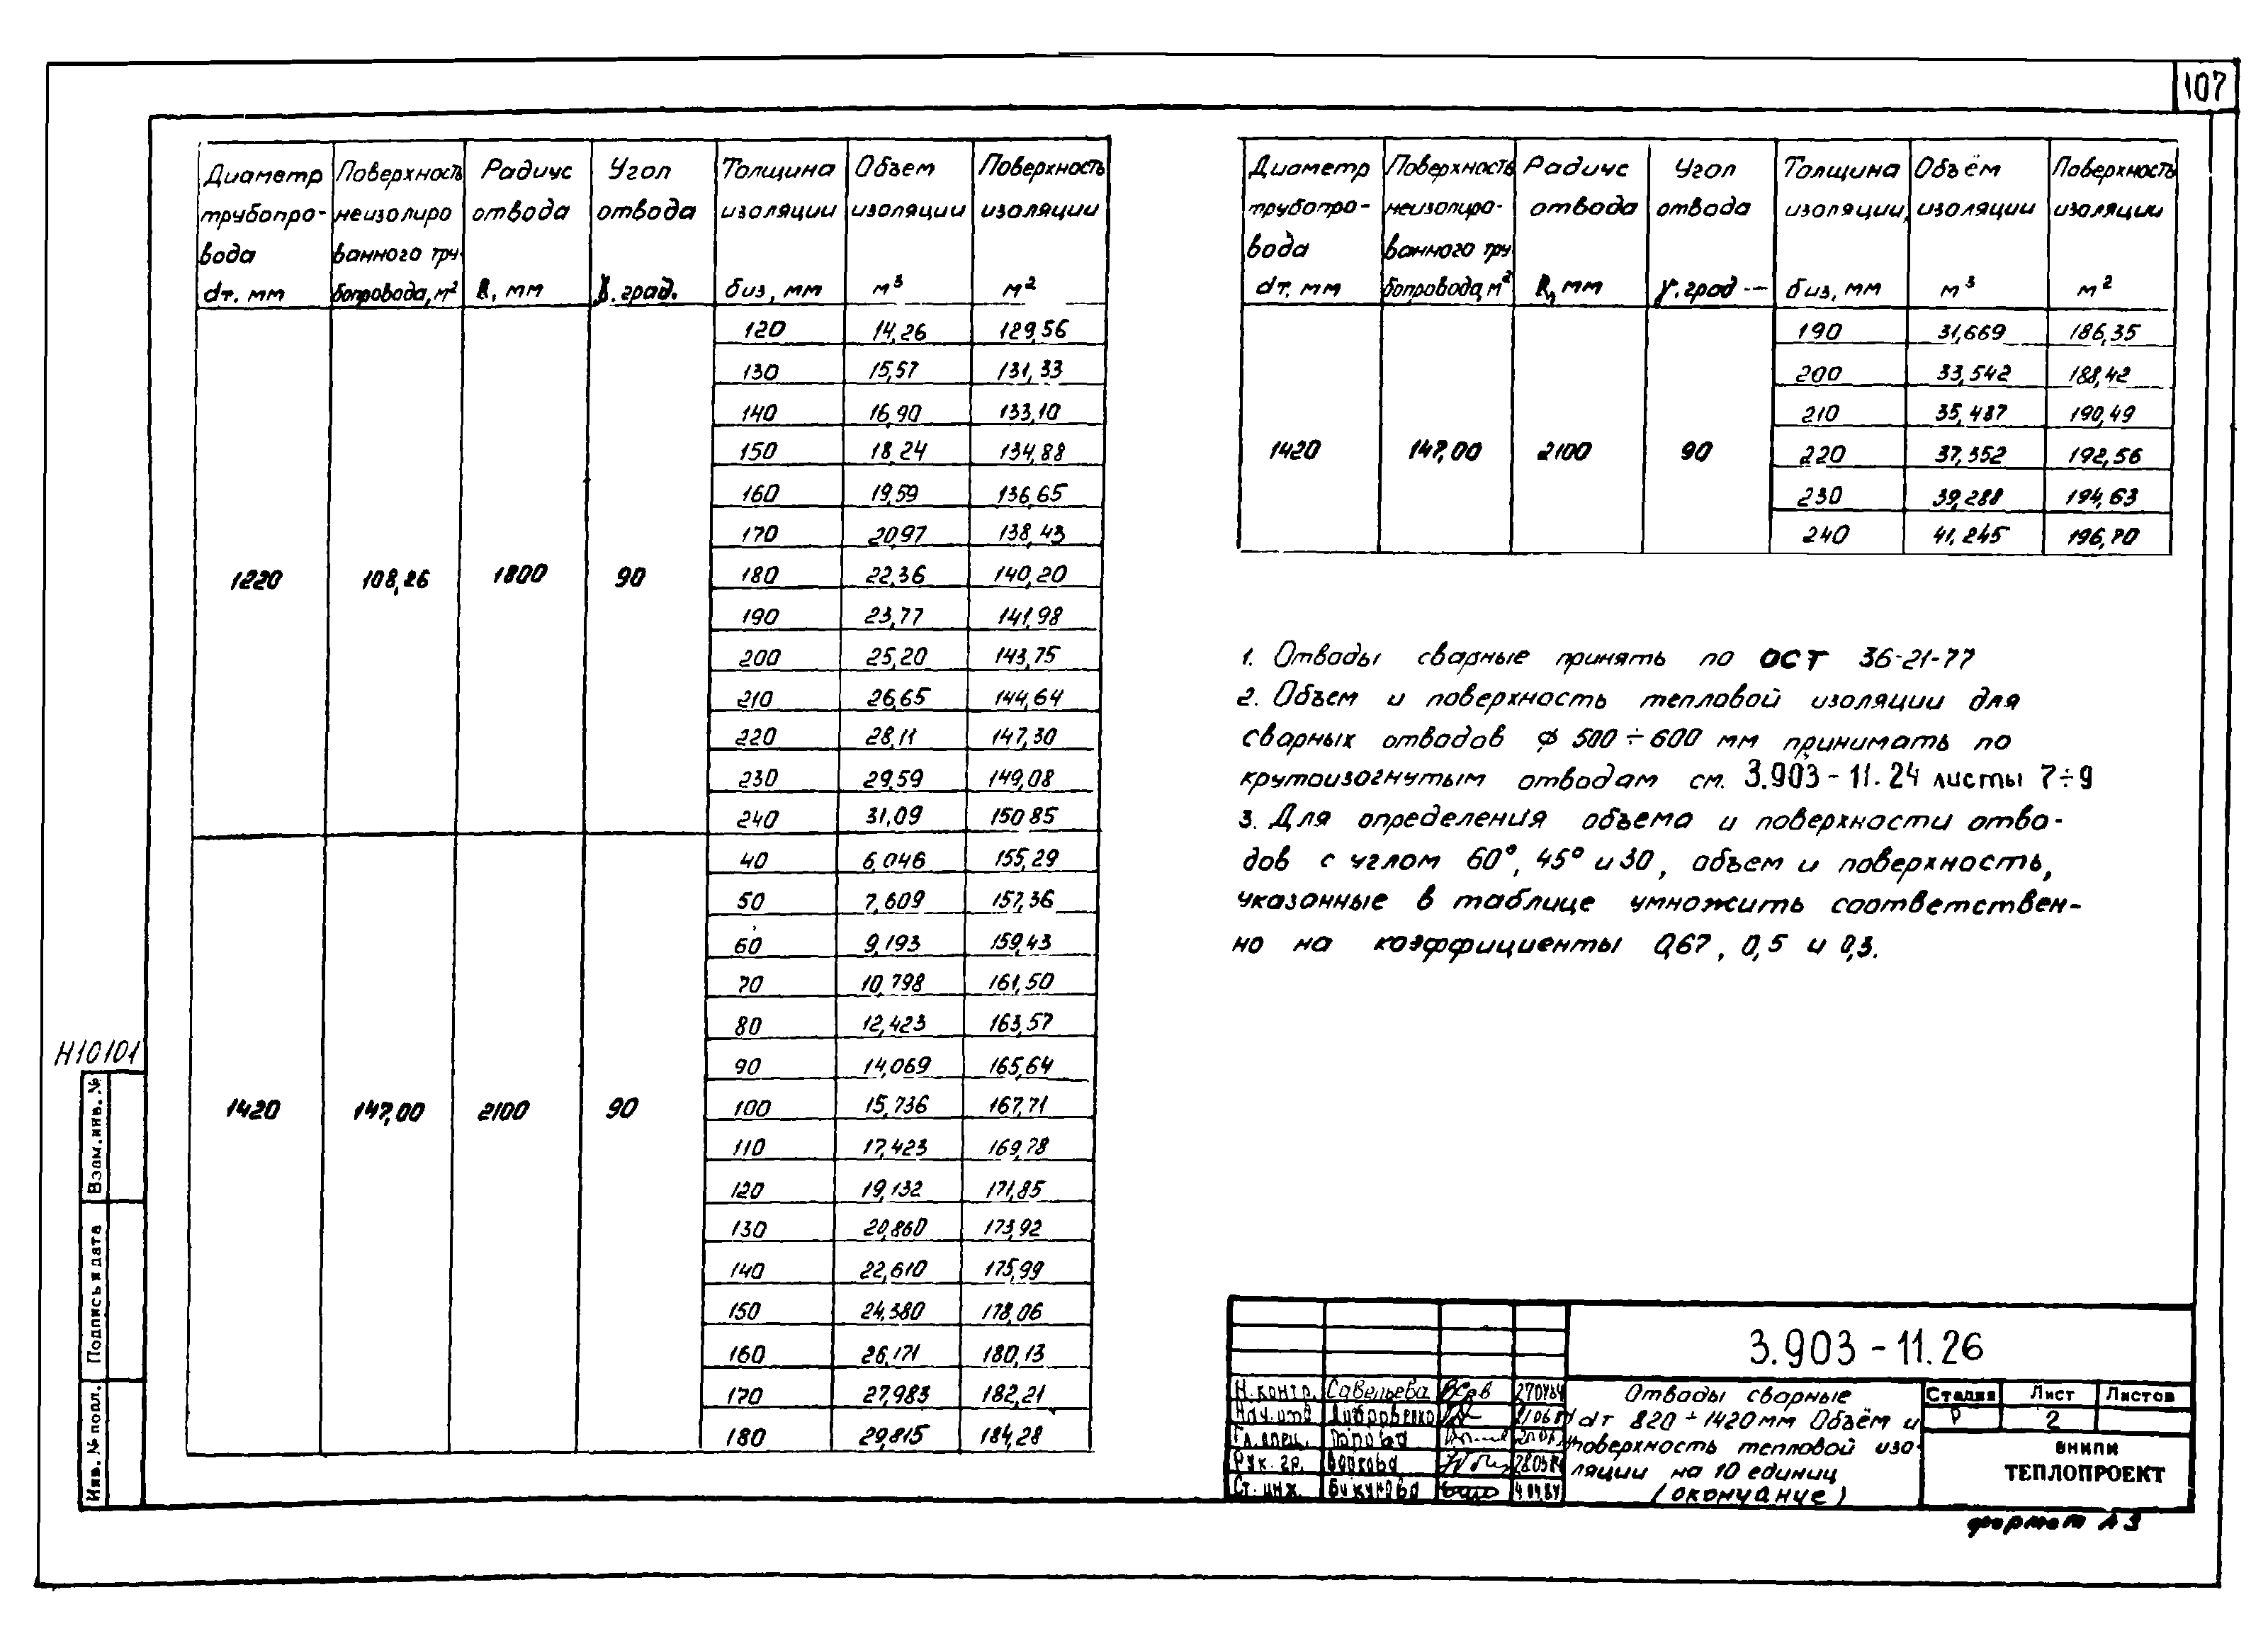 107
Диаметр Поверхность Радиус Угол Толщина Объем Поверхность
трубопро- неизолиро отвода отвода изоляции изоляции изоляции
вода ванного тру-
dт. мм бопровода, м² R, мм γ. град. бuз, мм м³ м²
120 14,26 129,56
130 15,57 131,33
140 16,90 133,10
150 18,24 134,88
160 19,59 136,65
170 20,97 138,43
1220 108,26 1800 90 180 22,36 140,20
190 23,77 141,98
200 25,20 143,75
210 26,65 144,64
220 28,11 147,30
230 29,59 149,08
240 31,09 150,85
40 6,046 155,29
50 7,609 157,36
60 9,193 159,43
70 10,798 161,50
80 12,423 163,57
90 14,069 165,64
1420 147,00 2100 90 100 15,736 167,71
110 17,423 169,78
120 19,132 171,85
130 20,860 173,92
140 22,610 175,99
150 24,380 178,06
160 26,171 180,13
170 27,983 182,21
180 29,815 184,28
Диаметр Поверхность Радиус Угол Толщина Объём Поверхность
трубопро- неизолиро- отвода отвода изоляции, изоляции изоляции
вода ванного тру
dт. мм бопровода, м² R, мм γ. град бuз, мм м³ м²
190 31,669 186,35
200 33,542 188,42
210 35,437 190,49
1420 147,00 2100 90 220 37,352 192,56
230 39,288 194,63
240 41,245 196,70
1. Отводы сварные принять по ОСТ 36-21-77
2. Объем и поверхность тепловой изоляции для
сварных отводов ϕ 500÷600 мм принимать по
крутоизогнутым отводам см. 3.903-11.24 листы 7÷9
3. Для определения объема и поверхности отво-
дов с углом 60°, 45° и 30, объем и поверхность,
указанные в таблице умножить соответствен-
но на коэффициенты 0,67, 0,5 и 0,3.
Н10101
Взам.инв.№
Подпись и дата
Инв.№ подл.
3.903-11.26
Н.контр. Савельева
Нач.отд
Гл.спец. Попова
Рук. гр. Волкова
Ст. инж.
Отводы сварные
dт 820 ÷ 1420мм Объём и
поверхность тепловой изо-
ляции на 10 единиц
(окончание)
Стадия Лист Листов
Р 2
ВНИПИ
ТЕПЛОПРОЕКТ
формат А3